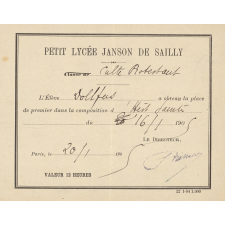 PETIT LYCÉE JANSON DE SAILLY
Classe de Culte Protestant
L'Élève Dollfus a obtenu la place
de premier dans la composition d'Hist. sainte
du 16/1 1905
LE DIRECTEUR,
Paris, le 20/1 1905
VALEUR 12 HEURES